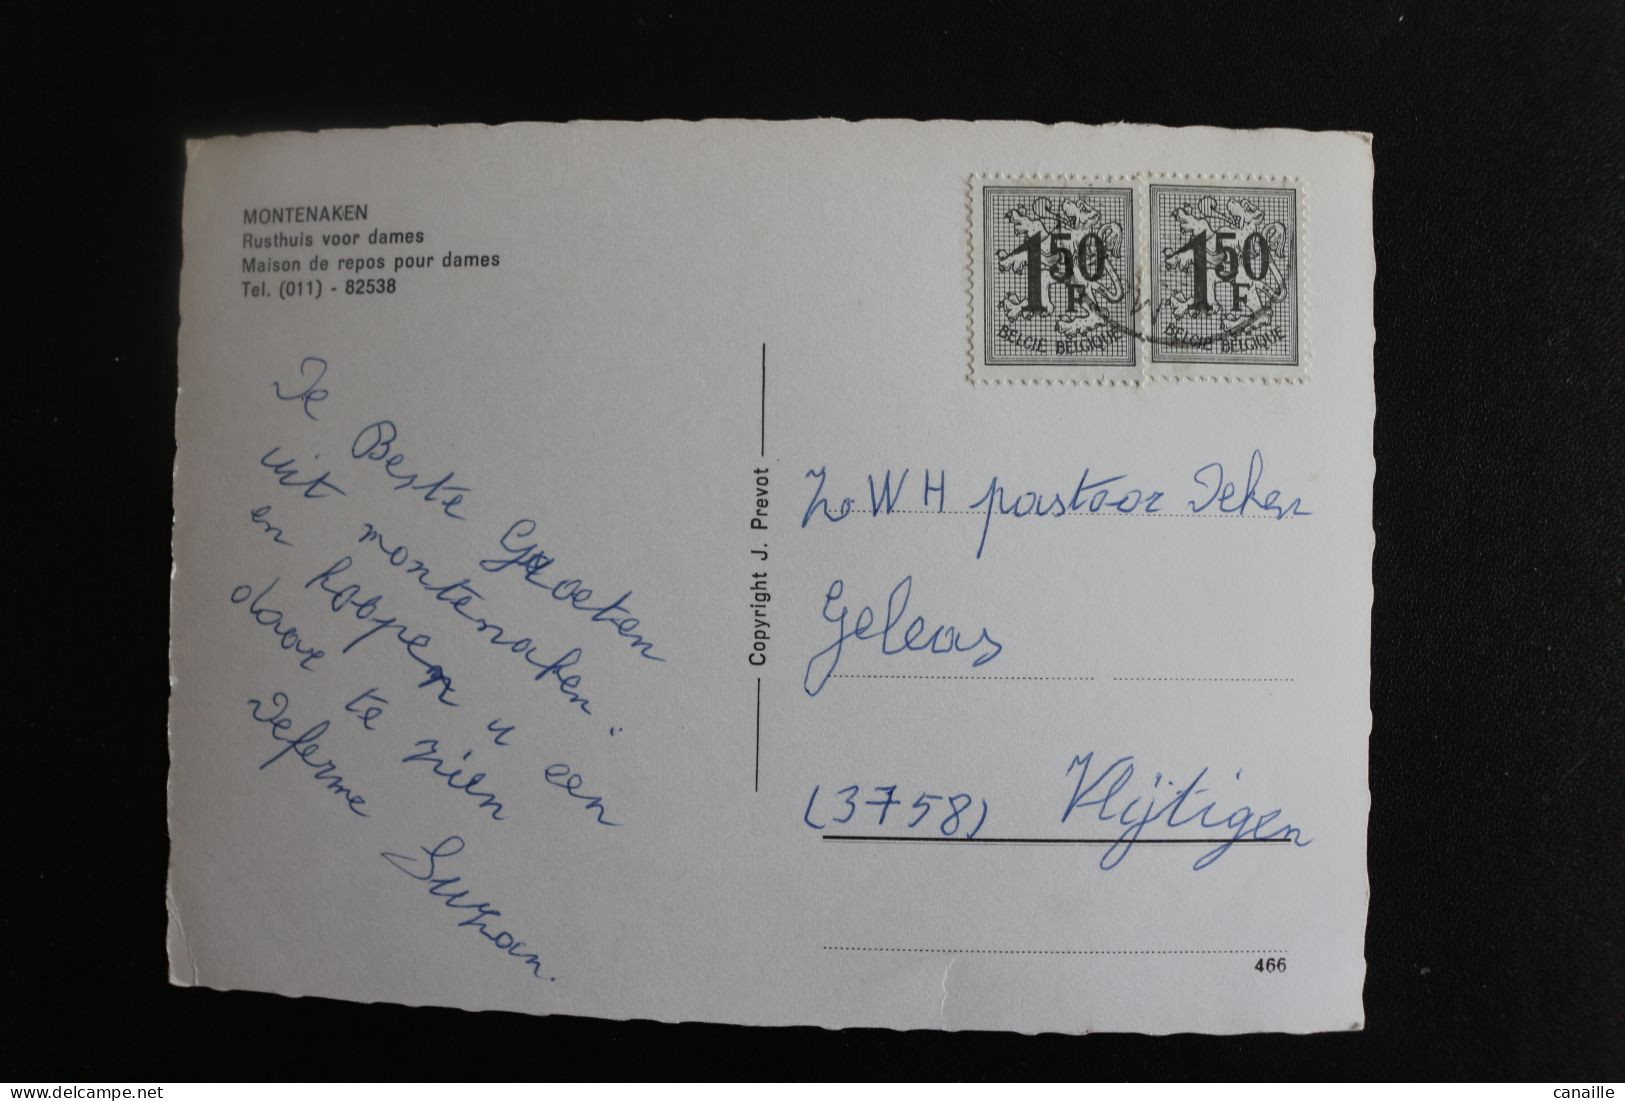 MONTENAKEN
Rusthuis voor dames
Maison de repos pour dames
Tel. (011) - 82538
1 50 F
BELGIE BELGIQUE
1 50 F
BELGIE BELGIQUE
De Beste Groeten
uit montenaken.
en hoopen u een
daar te zien
Deferme Suzan.
Copyright J. Prevot
WH pastoor Deken
Geleas
(3758) Vlijtigen
466
canaille